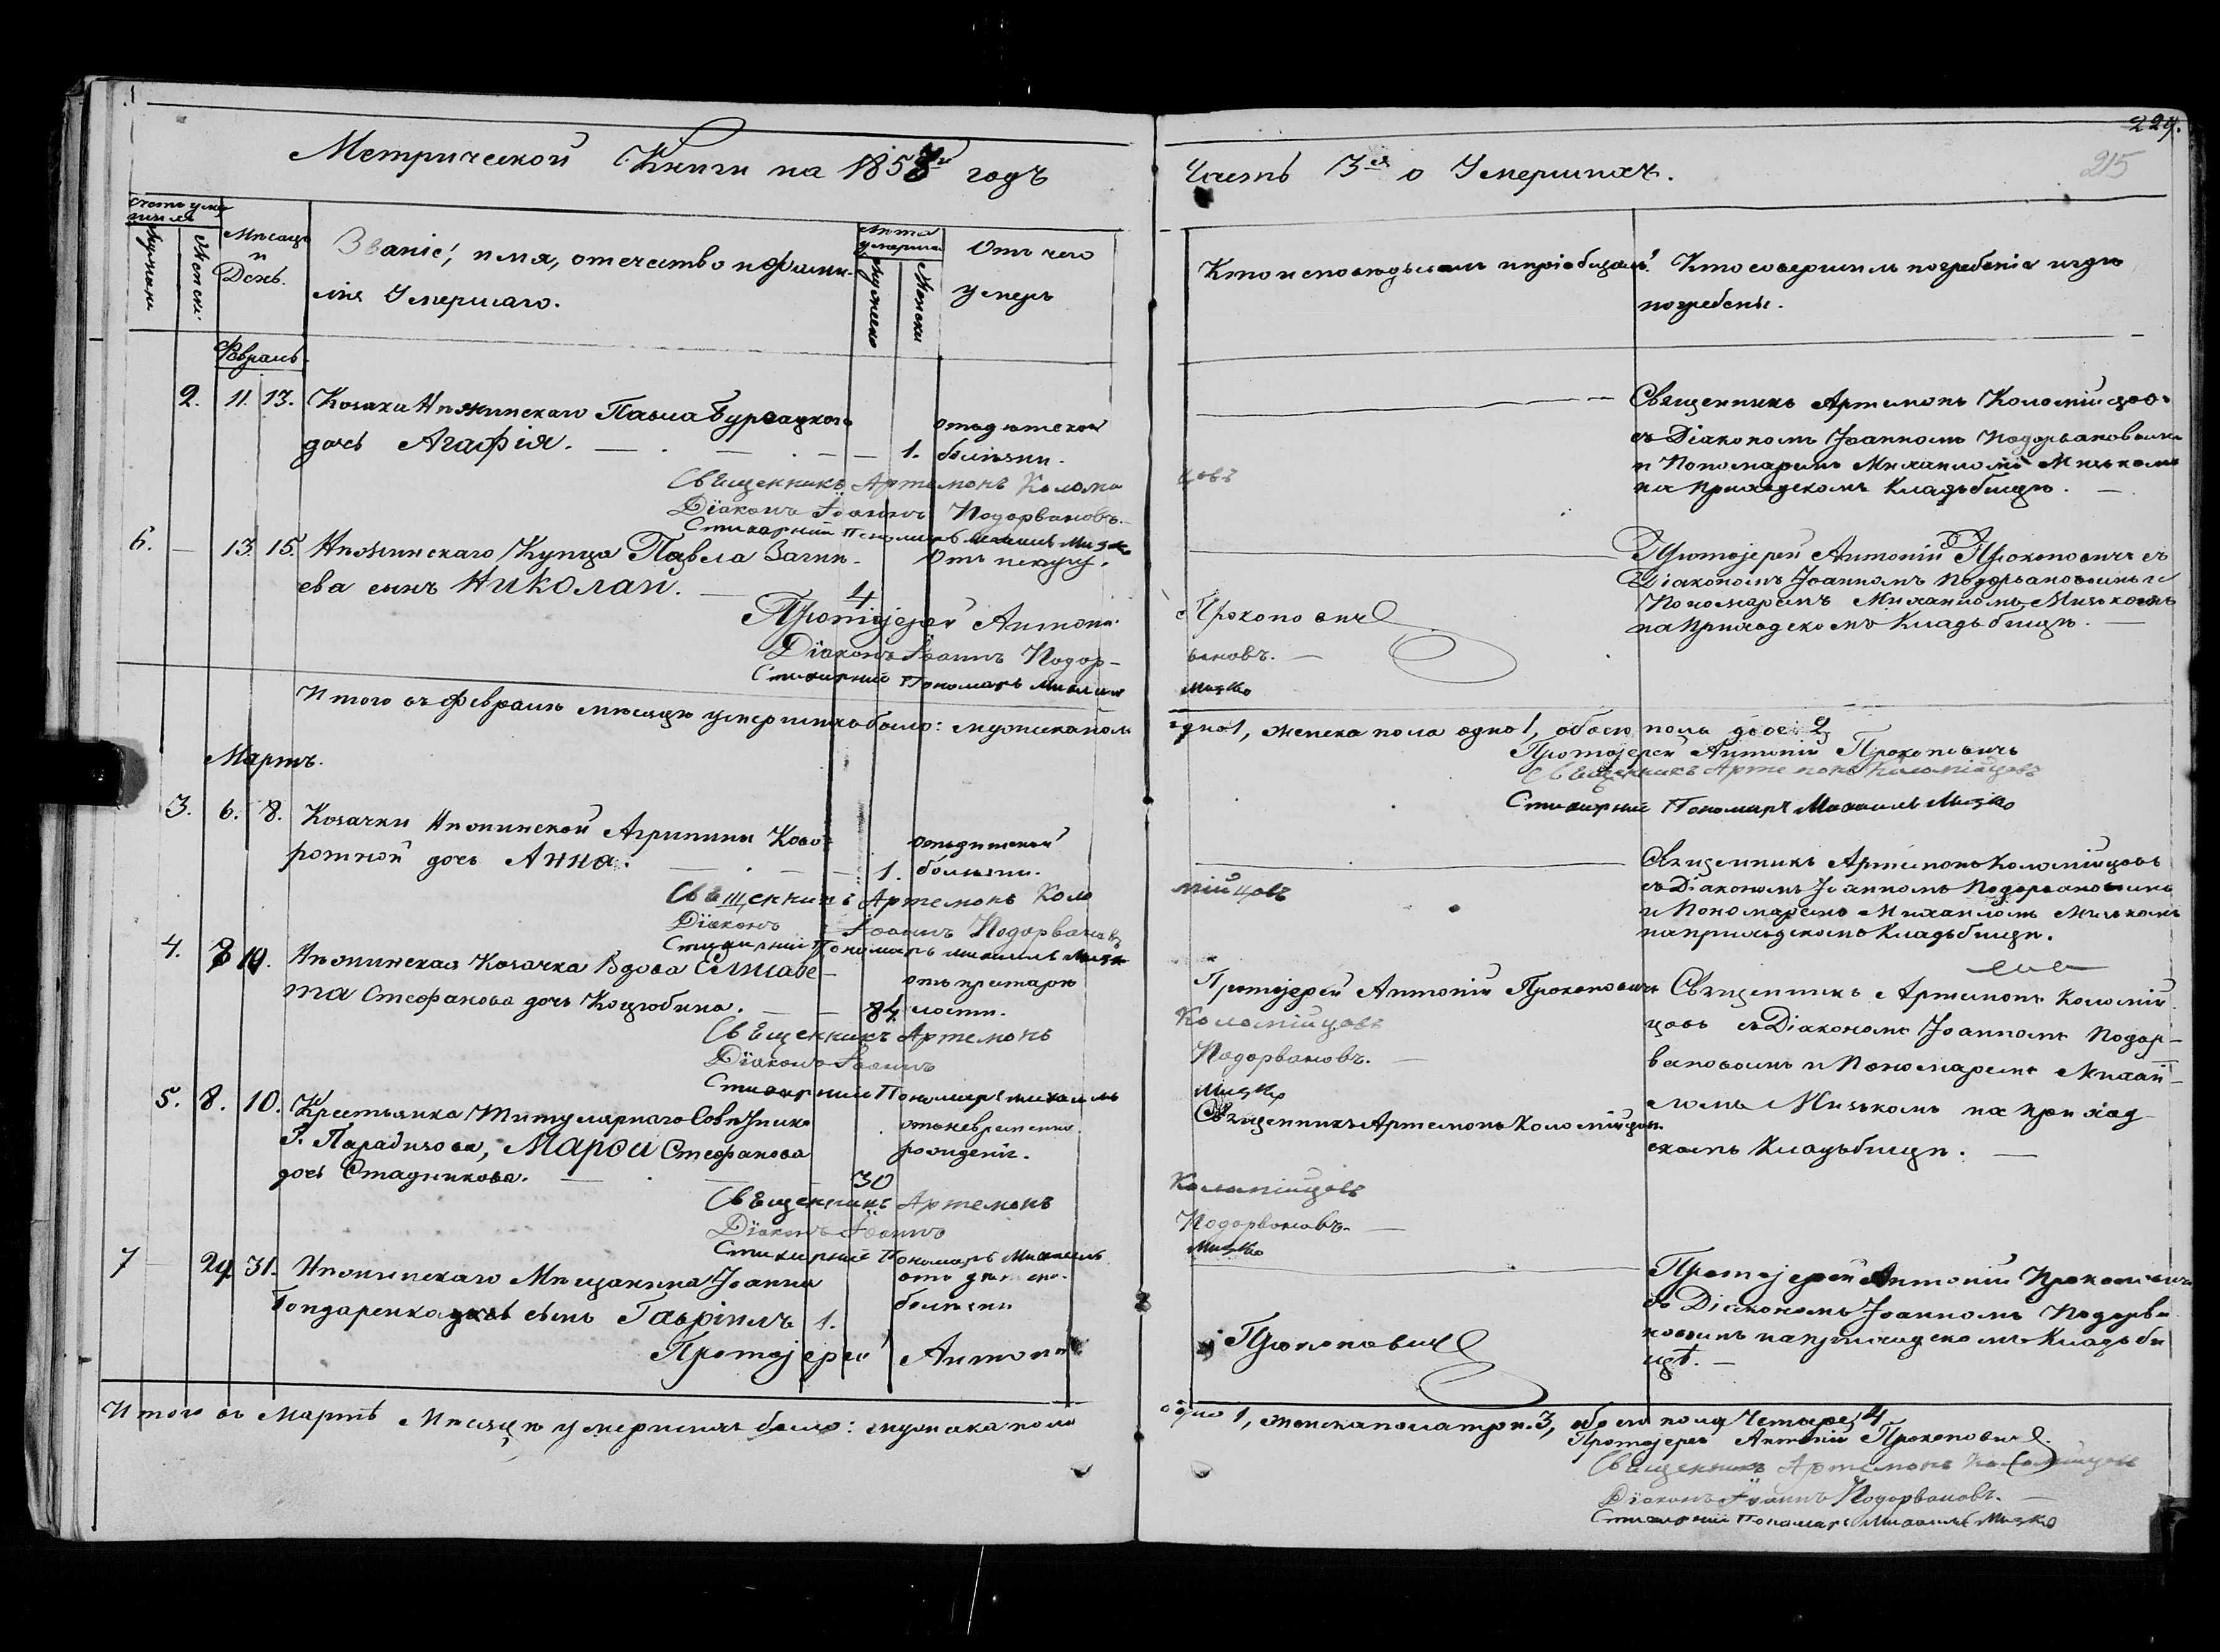 229.
215
Метрической Книги на 1858й годъ
Часть 3я о Умершихъ.
Счетъ умершихъ
Мужеска
Женска
Мѣсяцъ и День.
Званіе, имя, отечество и фамилія Умершаго.
Лѣта умершаго
Мужеска
Женска
Отъ чего умеръ
Кто исповѣдывалъ и пріобщалъ.
Кто совершилъ погребеніе и гдѣ погребены.
Февраль.
2. 11. 13. Козака Нѣжинскаго Павла Бурсацкого
дочь Агафія. — 1. отъ дѣтской болѣзни.
Священникъ Артемонъ Коломійцовъ
съ Діакономъ Іоанномъ Подорвановымъ
и Пономаремъ Михаиломъ Мизькомъ
на приходскомъ кладьбищѣ. —
Свѣщенникъ Артемонъ Коломійцовъ
Діаконъ Іоаннъ Подорвановъ.
Стихарный Пономарь Михаилъ Мизко
6. — 13. 15. Нѣжинскаго Купца Павла
ева сынъ Николай. — 4 Отъ испугу.
Протоіерей Антоній Прокоповичъ съ
Діакономъ Іоанномъ Подорвановымъ и
Пономаремъ Михаиломъ Мизькомъ
на приходскомъ кладьбищѣ. —
Протоіерей Антоній Прокоповичъ
Діаконъ Іоаннъ Подорвановъ. —
Стихарный Пономарь Михаилъ Мизко
Итого въ февралѣ мѣсяцѣ умершихъ было: мужеска пола одно 1, женска пола одно 1, обоего пола двое 2
Протоіерей Антоній Прокоповичъ
Свѣщенникъ Артемонъ Коломійцовъ
Стихарный Пономарь Михаилъ Мизко
Мартъ.
3. 6. 8. Козачки Нѣжинской Агрипины
ротной дочь Анна. — 1. отъ дѣтской болѣзни.
Священникъ Артемонъ Коломійцовъ
съ Діакономъ Іоанномъ Подорвановымъ
и Пономаремъ Михаиломъ Мизькомъ
на приходскомъ кладьбищѣ.
Свѣщенникъ Артемонъ Коломійцовъ
Діаконъ Іоаннъ Подорвановъ
Стихарный Пономарь Михаилъ Мизко
4. 10. Нѣжинская Козачка Вдова Елисаве-
та Стефанова дочь Коцюбина. — 84. отъ престарѣлости.
Протоіерей Антоній Прокоповичъ
Священникъ Артемонъ Коломій
цовъ съ Діакономъ Іоанномъ Подор-
вановымъ и Пономаремъ Михаи-
ломъ Мизькомъ на приход-
скомъ кладьбищѣ. —
Свѣщенникъ Артемонъ Коломійцовъ
Діаконъ Іоаннъ Подорвановъ. —
Стихарный Пономарь Михаилъ Мизко
5. 8. 10. Крестьянка Титулярнаго Совѣтника
Г. Парадизова, Марфа Стефанова
дочь Стадникова. — 30 отъ невременна. рожденія.
Священникъ Артемонъ Коломійцовъ
Свѣщенникъ Артемонъ Коломійцовъ
Діаконъ Іоаннъ Подорвановъ. —
Стихарный Пономарь Михаилъ Мизко
7 — 29 31. Нѣжинскаго Мѣщанина Іоанна
Бондаренка сынъ Гавріилъ 1. отъ дѣтско. болѣзни
Протоіерей Антоній Прокоповичъ
съ Діакономъ Іоанномъ Подорва
новымъ на приходскомъ кладьби
щѣ. —
Протоіерей Антоній Прокоповичъ
Итого въ Мартѣ Мѣсяцѣ умершихъ было: мужска пола одно 1, женска пола три 3, обоего пола Четыре 4
Протоіерей Антоній Прокоповичъ
Свѣщенникъ Артемонъ Коломійцовъ
Діаконъ Іоаннъ Подорвановъ. —
Стихарный Пономарь Михаилъ Мизко